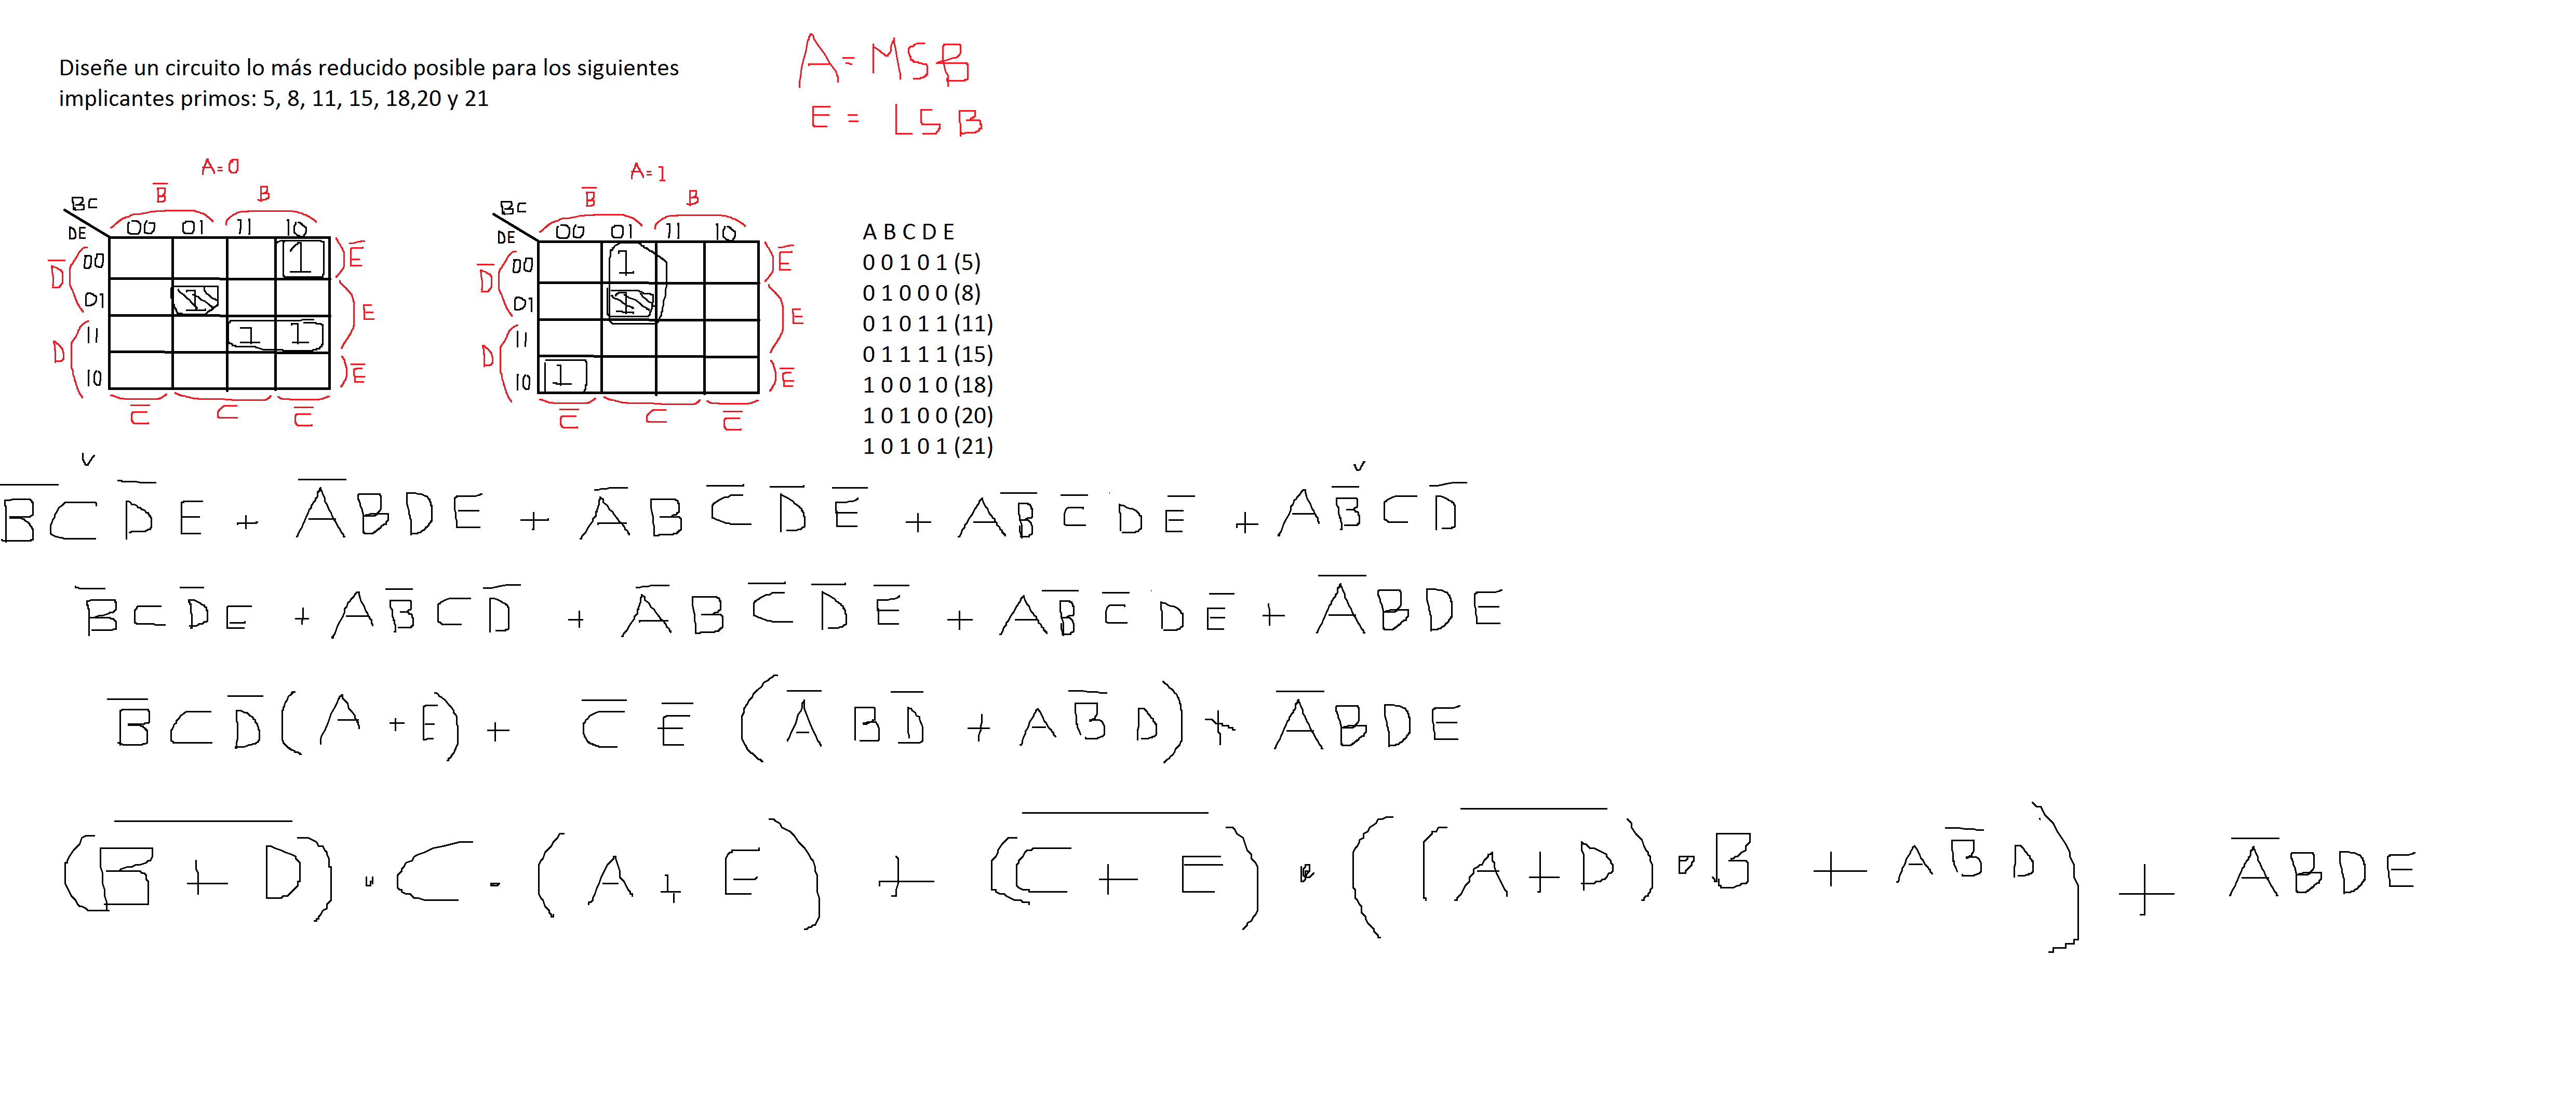 Diseñe un circuito lo más reducido posible para los siguientes
implicantes primos: 5, 8, 11, 15, 18,20 y 21
A = MSB
E = LSB
A=0
B̅ B
BC
00 01 11 10
DE
D̅ 00 1 E̅
01 1 E
D 11 1 1
10 E̅
C̅ C C̅
A=1
B̅ B
BC
00 01 11 10
DE
D̅ 00 1 E̅
01 1 E
D 11
10 1 E̅
C̅ C C̅
A B C D E
0 0 1 0 1 (5)
0 1 0 0 0 (8)
0 1 0 1 1 (11)
0 1 1 1 1 (15)
1 0 0 1 0 (18)
1 0 1 0 0 (20)
1 0 1 0 1 (21)
B̅ C D̅ E + A̅ B D E + A̅ B C̅ D̅ E̅ + A B̅ C̅ D E̅ + A B̅ C D̅
B̅ C D̅ E + A B̅ C D̅ + A̅ B C̅ D̅ E̅ + A B̅ C̅ D E̅ + A̅ B D E
B̅ C D̅ (A + E) + C̅ E̅ (A̅ B D̅ + A B̅ D) + A̅ B D E
(B + D)̅ · C · (A + E) + (C + E)̅ · ((A + D)̅ · B + A B̅ D) + A̅ B D E